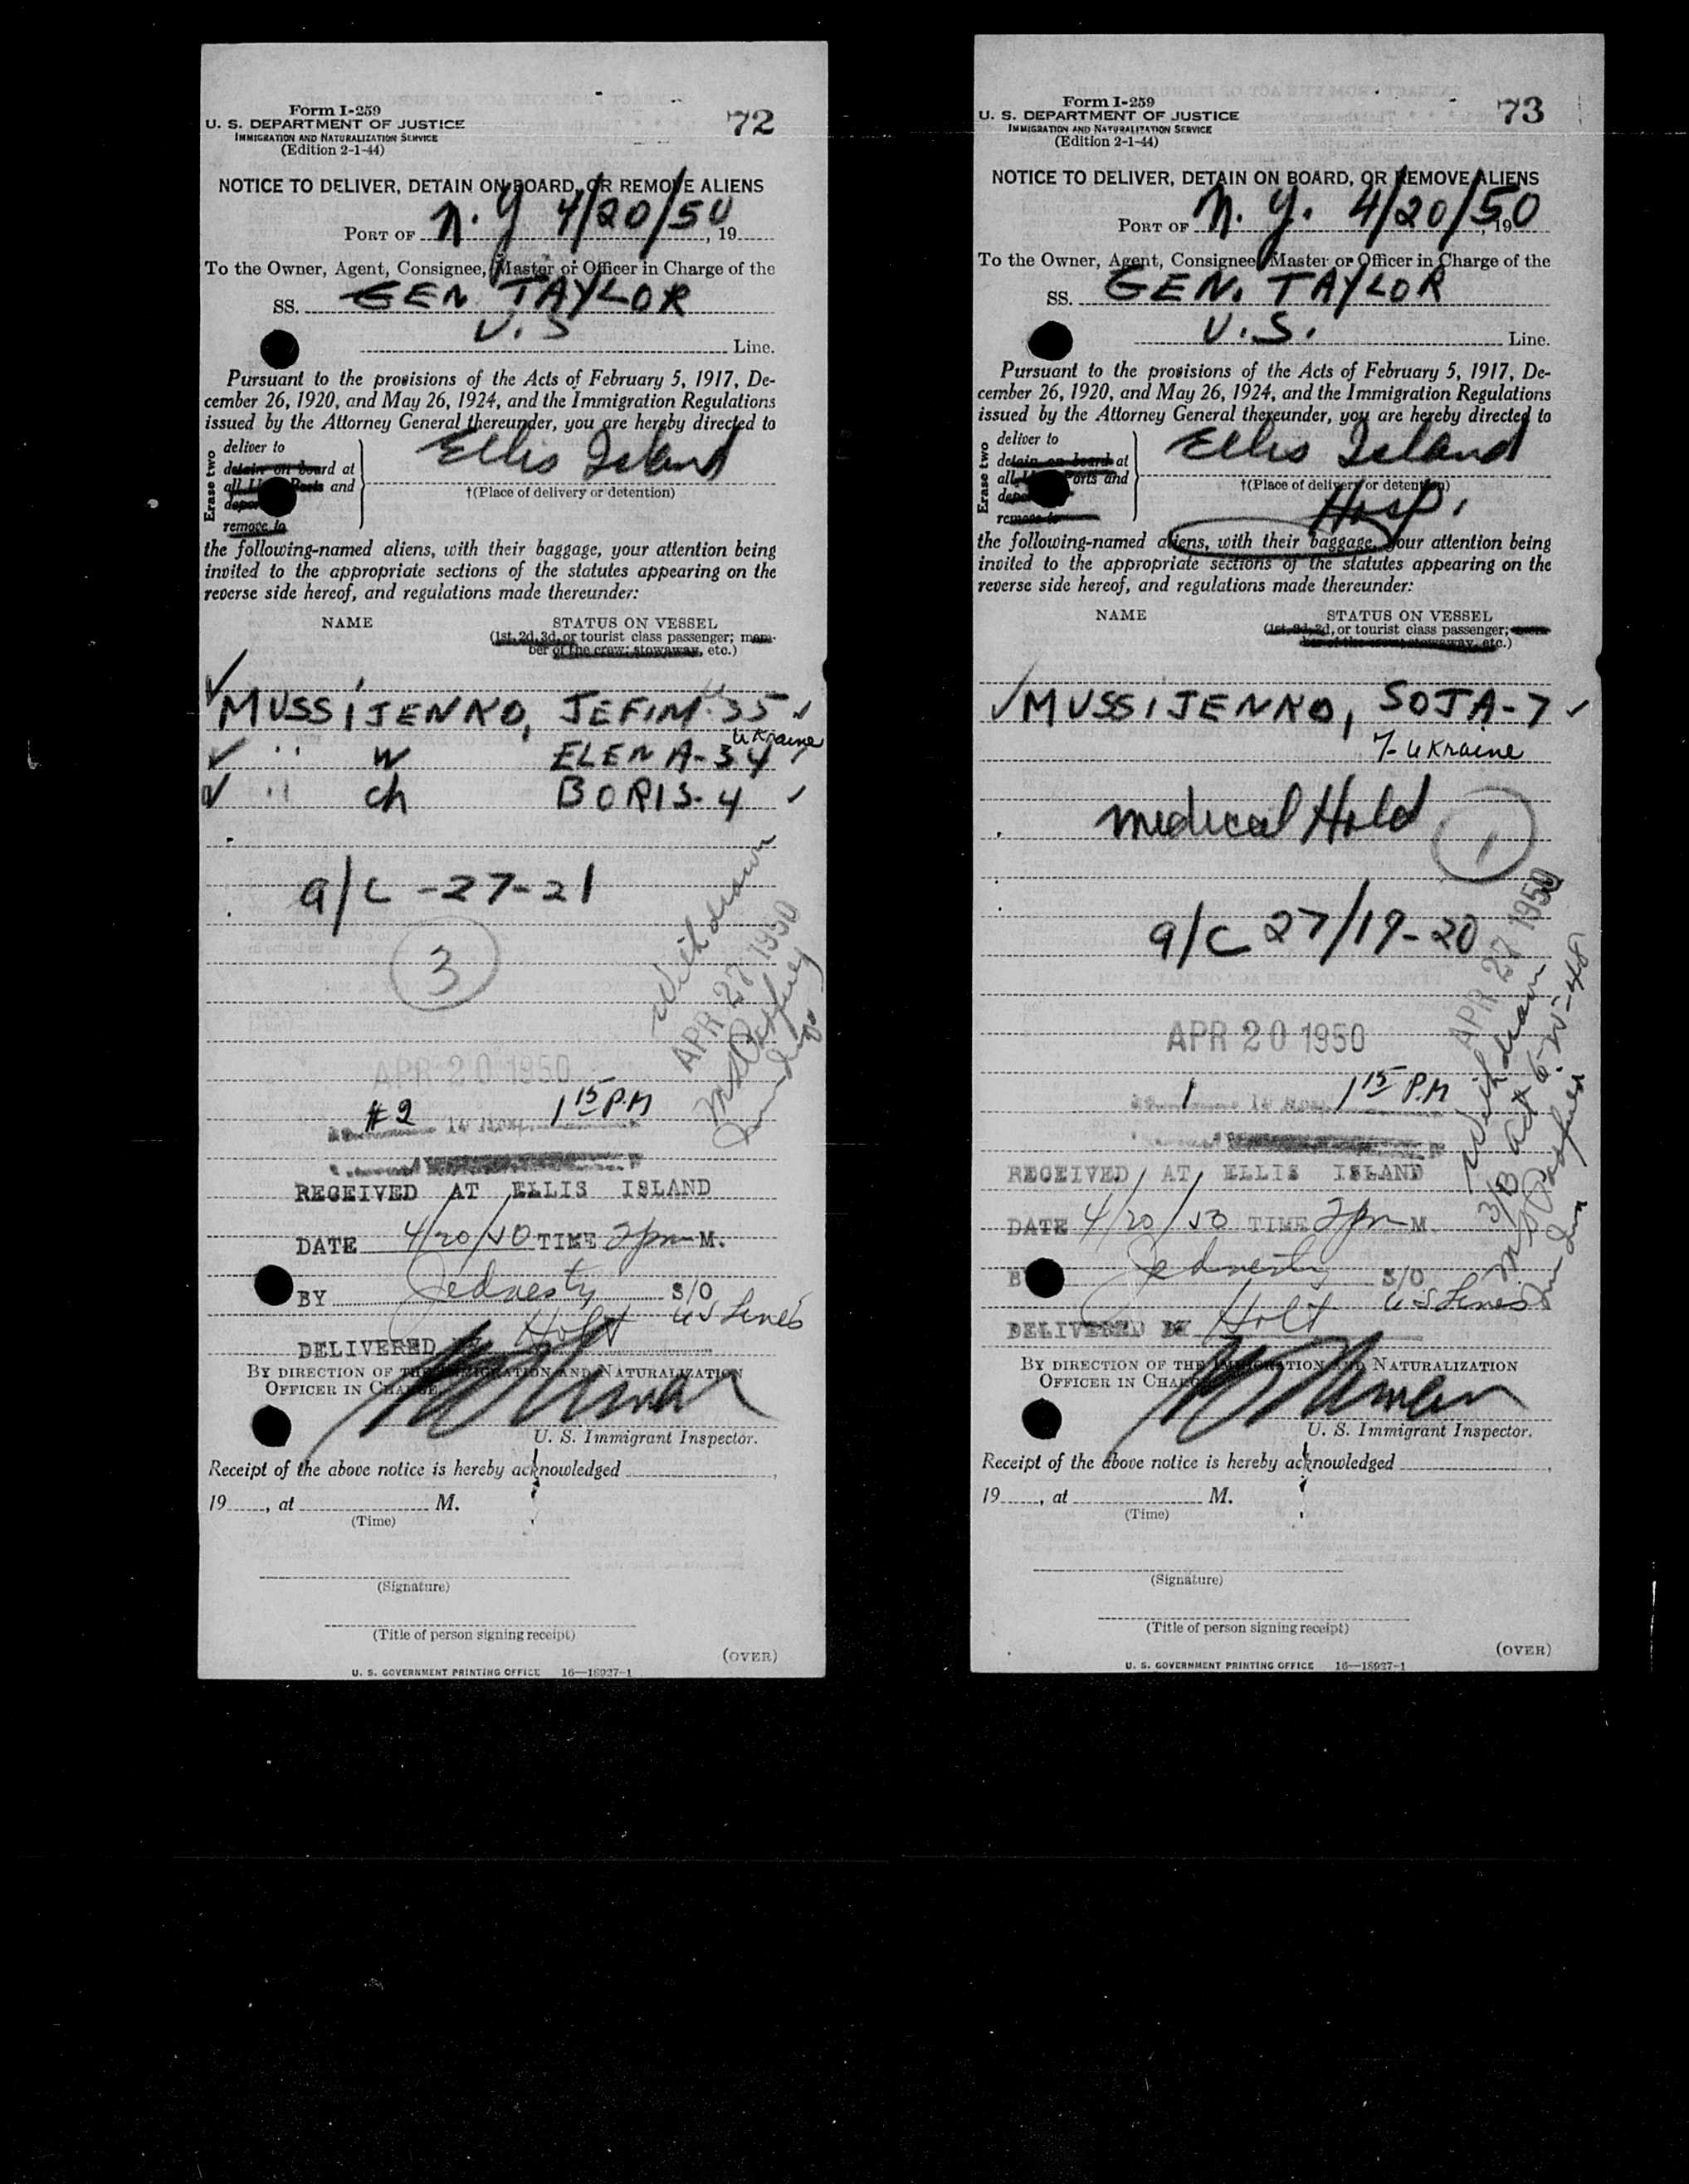 Form I-259
U. S. DEPARTMENT OF JUSTICE
IMMIGRATION AND NATURALIZATION SERVICE
(Edition 2-1-44)
72
NOTICE TO DELIVER, DETAIN ON BOARD, OR REMOVE ALIENS
PORT OF N. Y 4/20/50, 19
To the Owner, Agent, Consignee, Master or Officer in Charge of the
SS. GEN TAYLOR
U. S Line.
Pursuant to the provisions of the Acts of February 5, 1917, De-
cember 26, 1920, and May 26, 1924, and the Immigration Regulations
issued by the Attorney General thereunder, you are hereby directed to
Erase two
deliver to
detain on board at
all Ports and
remove to
Ellis Island
†(Place of delivery or detention)
the following-named aliens, with their baggage, your attention being
invited to the appropriate sections of the statutes appearing on the
reverse side hereof, and regulations made thereunder:
NAME STATUS ON VESSEL
(1st, 2d, 3d, or tourist class passenger; mem-
ber of the crew; stowaway, etc.)
✓ MUSSIJENKO, JEFIM-35 ✓
Ukraine
✓ " W ELENA-34 ✓
✓ " ch BORIS-4 ✓
a/c -27-21
3
Withdrawn
APR 27 1950
APR 20 1950
#2 1 15 P.M
RECEIVED AT ELLIS ISLAND
DATE 4/20/50 TIME 2pm M.
BY S/O
US Lines
DELIVERED BY Holt
BY DIRECTION OF THE IMMIGRATION AND NATURALIZATION
OFFICER IN CHARGE.
U. S. Immigrant Inspector.
Receipt of the above notice is hereby acknowledged ,
19 , at M.
(Time)
(Signature)
(Title of person signing receipt)
(OVER)
U. S. GOVERNMENT PRINTING OFFICE 16—18927-1
Form I-259
U. S. DEPARTMENT OF JUSTICE
IMMIGRATION AND NATURALIZATION SERVICE
(Edition 2-1-44)
73
NOTICE TO DELIVER, DETAIN ON BOARD, OR REMOVE ALIENS
PORT OF N. Y. 4/20/50, 19
To the Owner, Agent, Consignee, Master or Officer in Charge of the
SS. GEN. TAYLOR
U. S. Line.
Pursuant to the provisions of the Acts of February 5, 1917, De-
cember 26, 1920, and May 26, 1924, and the Immigration Regulations
issued by the Attorney General thereunder, you are hereby directed to
Erase two
deliver to
detain on board at
all Ports and
remove to
Ellis Island
†(Place of delivery or detention)
Hosp.
the following-named aliens, with their baggage, your attention being
invited to the appropriate sections of the statutes appearing on the
reverse side hereof, and regulations made thereunder:
NAME STATUS ON VESSEL
(1st, 2d, 3d, or tourist class passenger; mem-
ber of the crew; stowaway, etc.)
✓ MUSSIJENKO, SOJA-7 ✓
7- Ukraine
medical Hold
1
a/c 27/19-20
APR 27 1950
Withdrawn
APR 20 1950
1 1 15 P.M
RECEIVED AT ELLIS ISLAND
DATE 4/20/50 TIME 2pm M.
BY S/O
US Lines
DELIVERED BY Holt
BY DIRECTION OF THE IMMIGRATION AND NATURALIZATION
OFFICER IN CHARGE
U. S. Immigrant Inspector.
Receipt of the above notice is hereby acknowledged ,
19 , at M.
(Time)
(Signature)
(Title of person signing receipt)
(OVER)
U. S. GOVERNMENT PRINTING OFFICE 16—18927-1